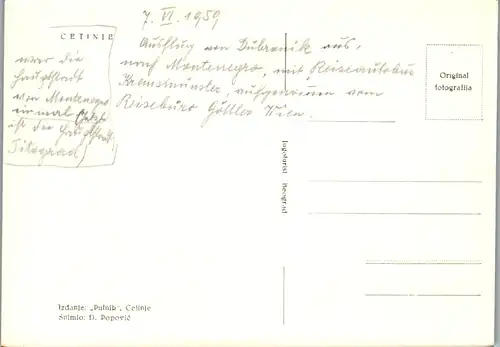 CETINJE
war die
Hauptstadt
von Montenegro
einmal (Jetzt
ist die Hauptstadt
Titograd)
7. VI. 1959
Ausflug von Dubrovnik aus,
nach Montenegro, mit Reiseautobus
Kremsmünster, aufgenommen vom
Reisebüro Göttler Wien.
Original
fotografija
Jugoturist Beograd
Izdanje: „Putnik“, Cetinje
Snimio: D. Popović